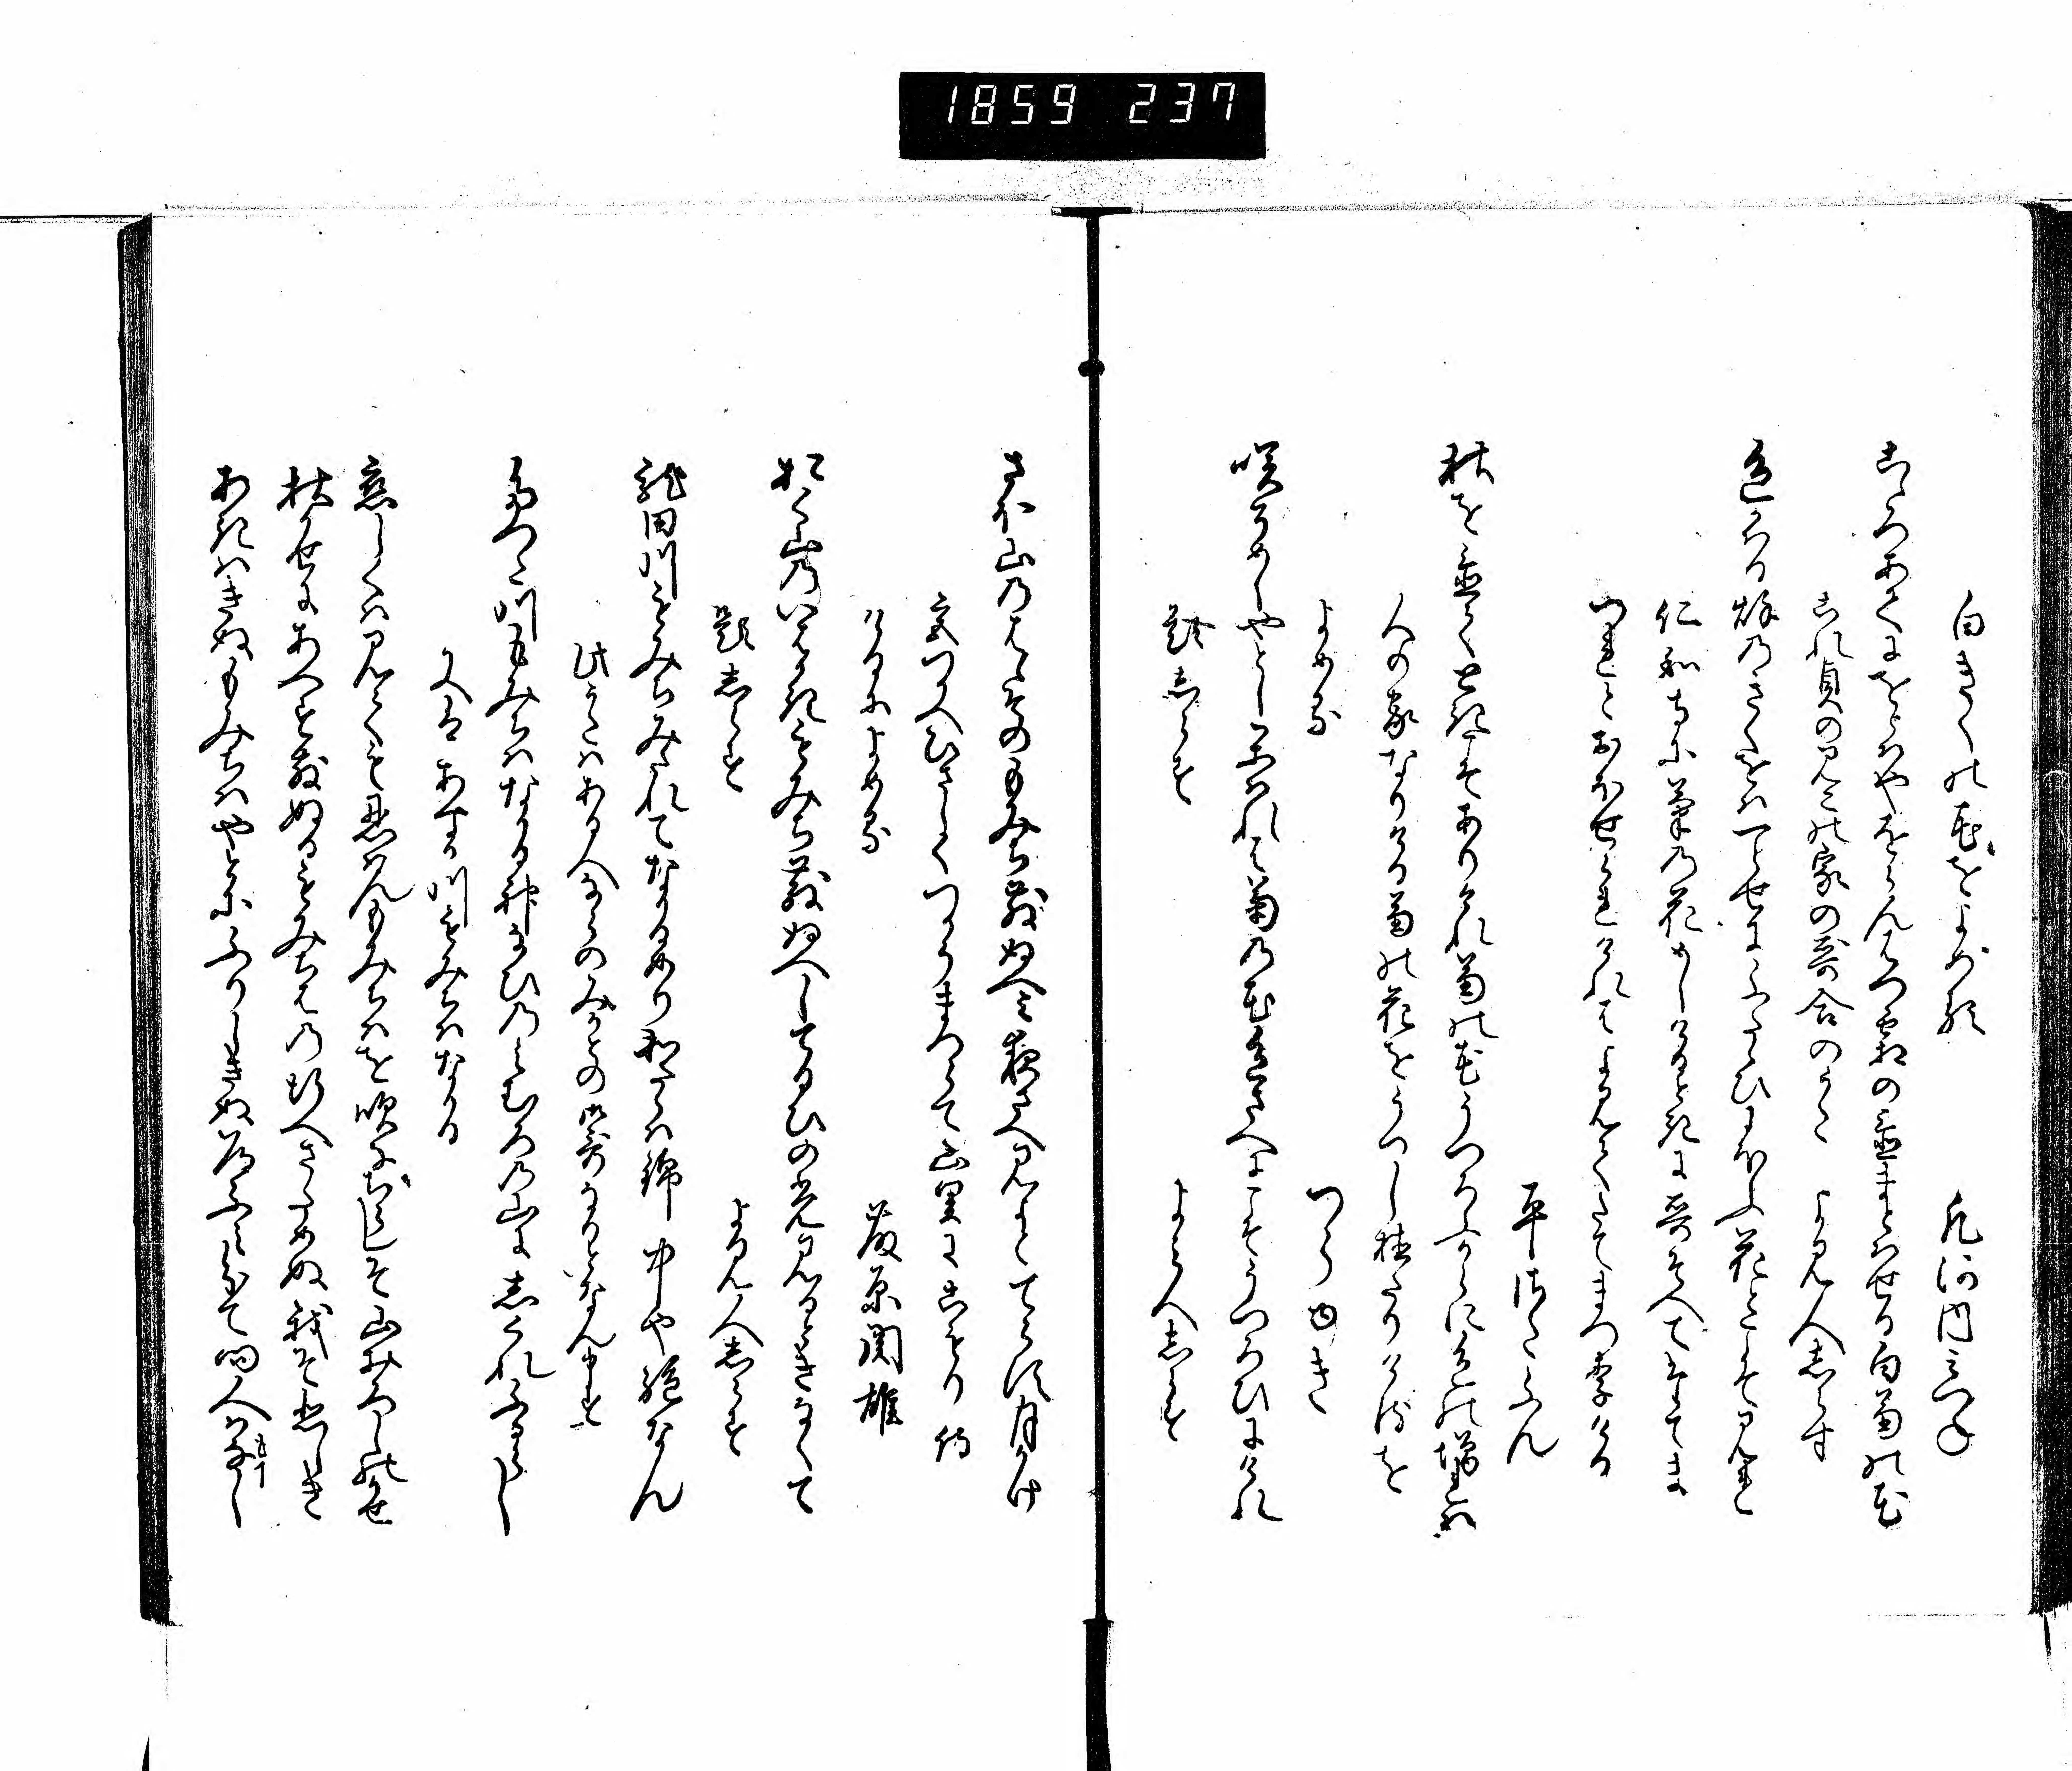 1859 237
白きくの花をよめる　凡河内みつね
心あてにをらはやをらんはつ霜の置まとはせる白菊の花
これ貞のみこの家の哥合のうた　よみ人しらす
色かはる秋のきくをは一とせにふたゝひにほふ花とこそみれ
仁和寺に菊の花めしける時に哥そへてたてま
つれとおほせられけれはよみてたてまつりける
平さたふん
秋を置て時こそありけれ菊の花うつろふからに色の増れは
人の家なりける菊の花をうつし植たりけるを
よめる　つらゆき
咲そめしやとしかはれは菊の花色さへにこそうつろひにけれ
題しらす　よみ人しらす
さほ山のはゝそのもみち散ぬへみ夜さへみよとてらす月かけ
宮つかへひさしくつかうまつらて山里にこもり侍
けるによめる　藤原関雄
おく山のいはかきもみち散ぬへしてる日の光みる時なくて
題しらす　よみ人しらす
龍田川もみちみたれてなかるめりわたらは錦中や絶なん
此うたはある人ならのみかとの御哥なりとなん申す
たつた川もみちはなかる神なひのみむろの山に志くれふるらし
又はあすか川もみちはなかる
恋しくはみても忍はんもみちはを吹なちらしそ山おろしの風
秋かせにあへす散ぬるもみちはの行へさためぬ我そ悲しき
あきはきぬもみちはやとにふりしきぬ道ふみ分て問人はなし